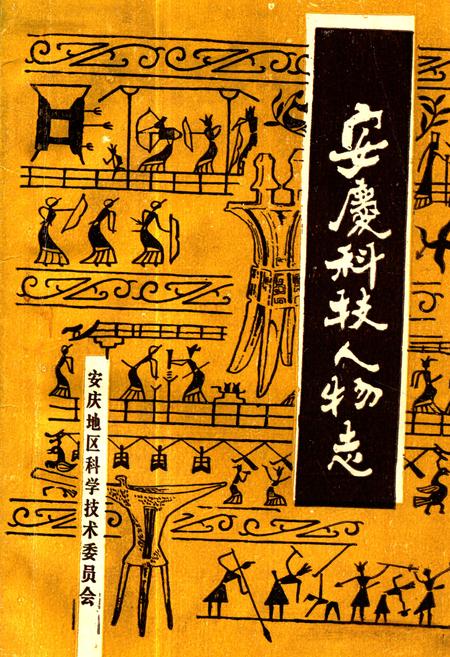 安慶科技人物志
安庆地区科学技术委员会